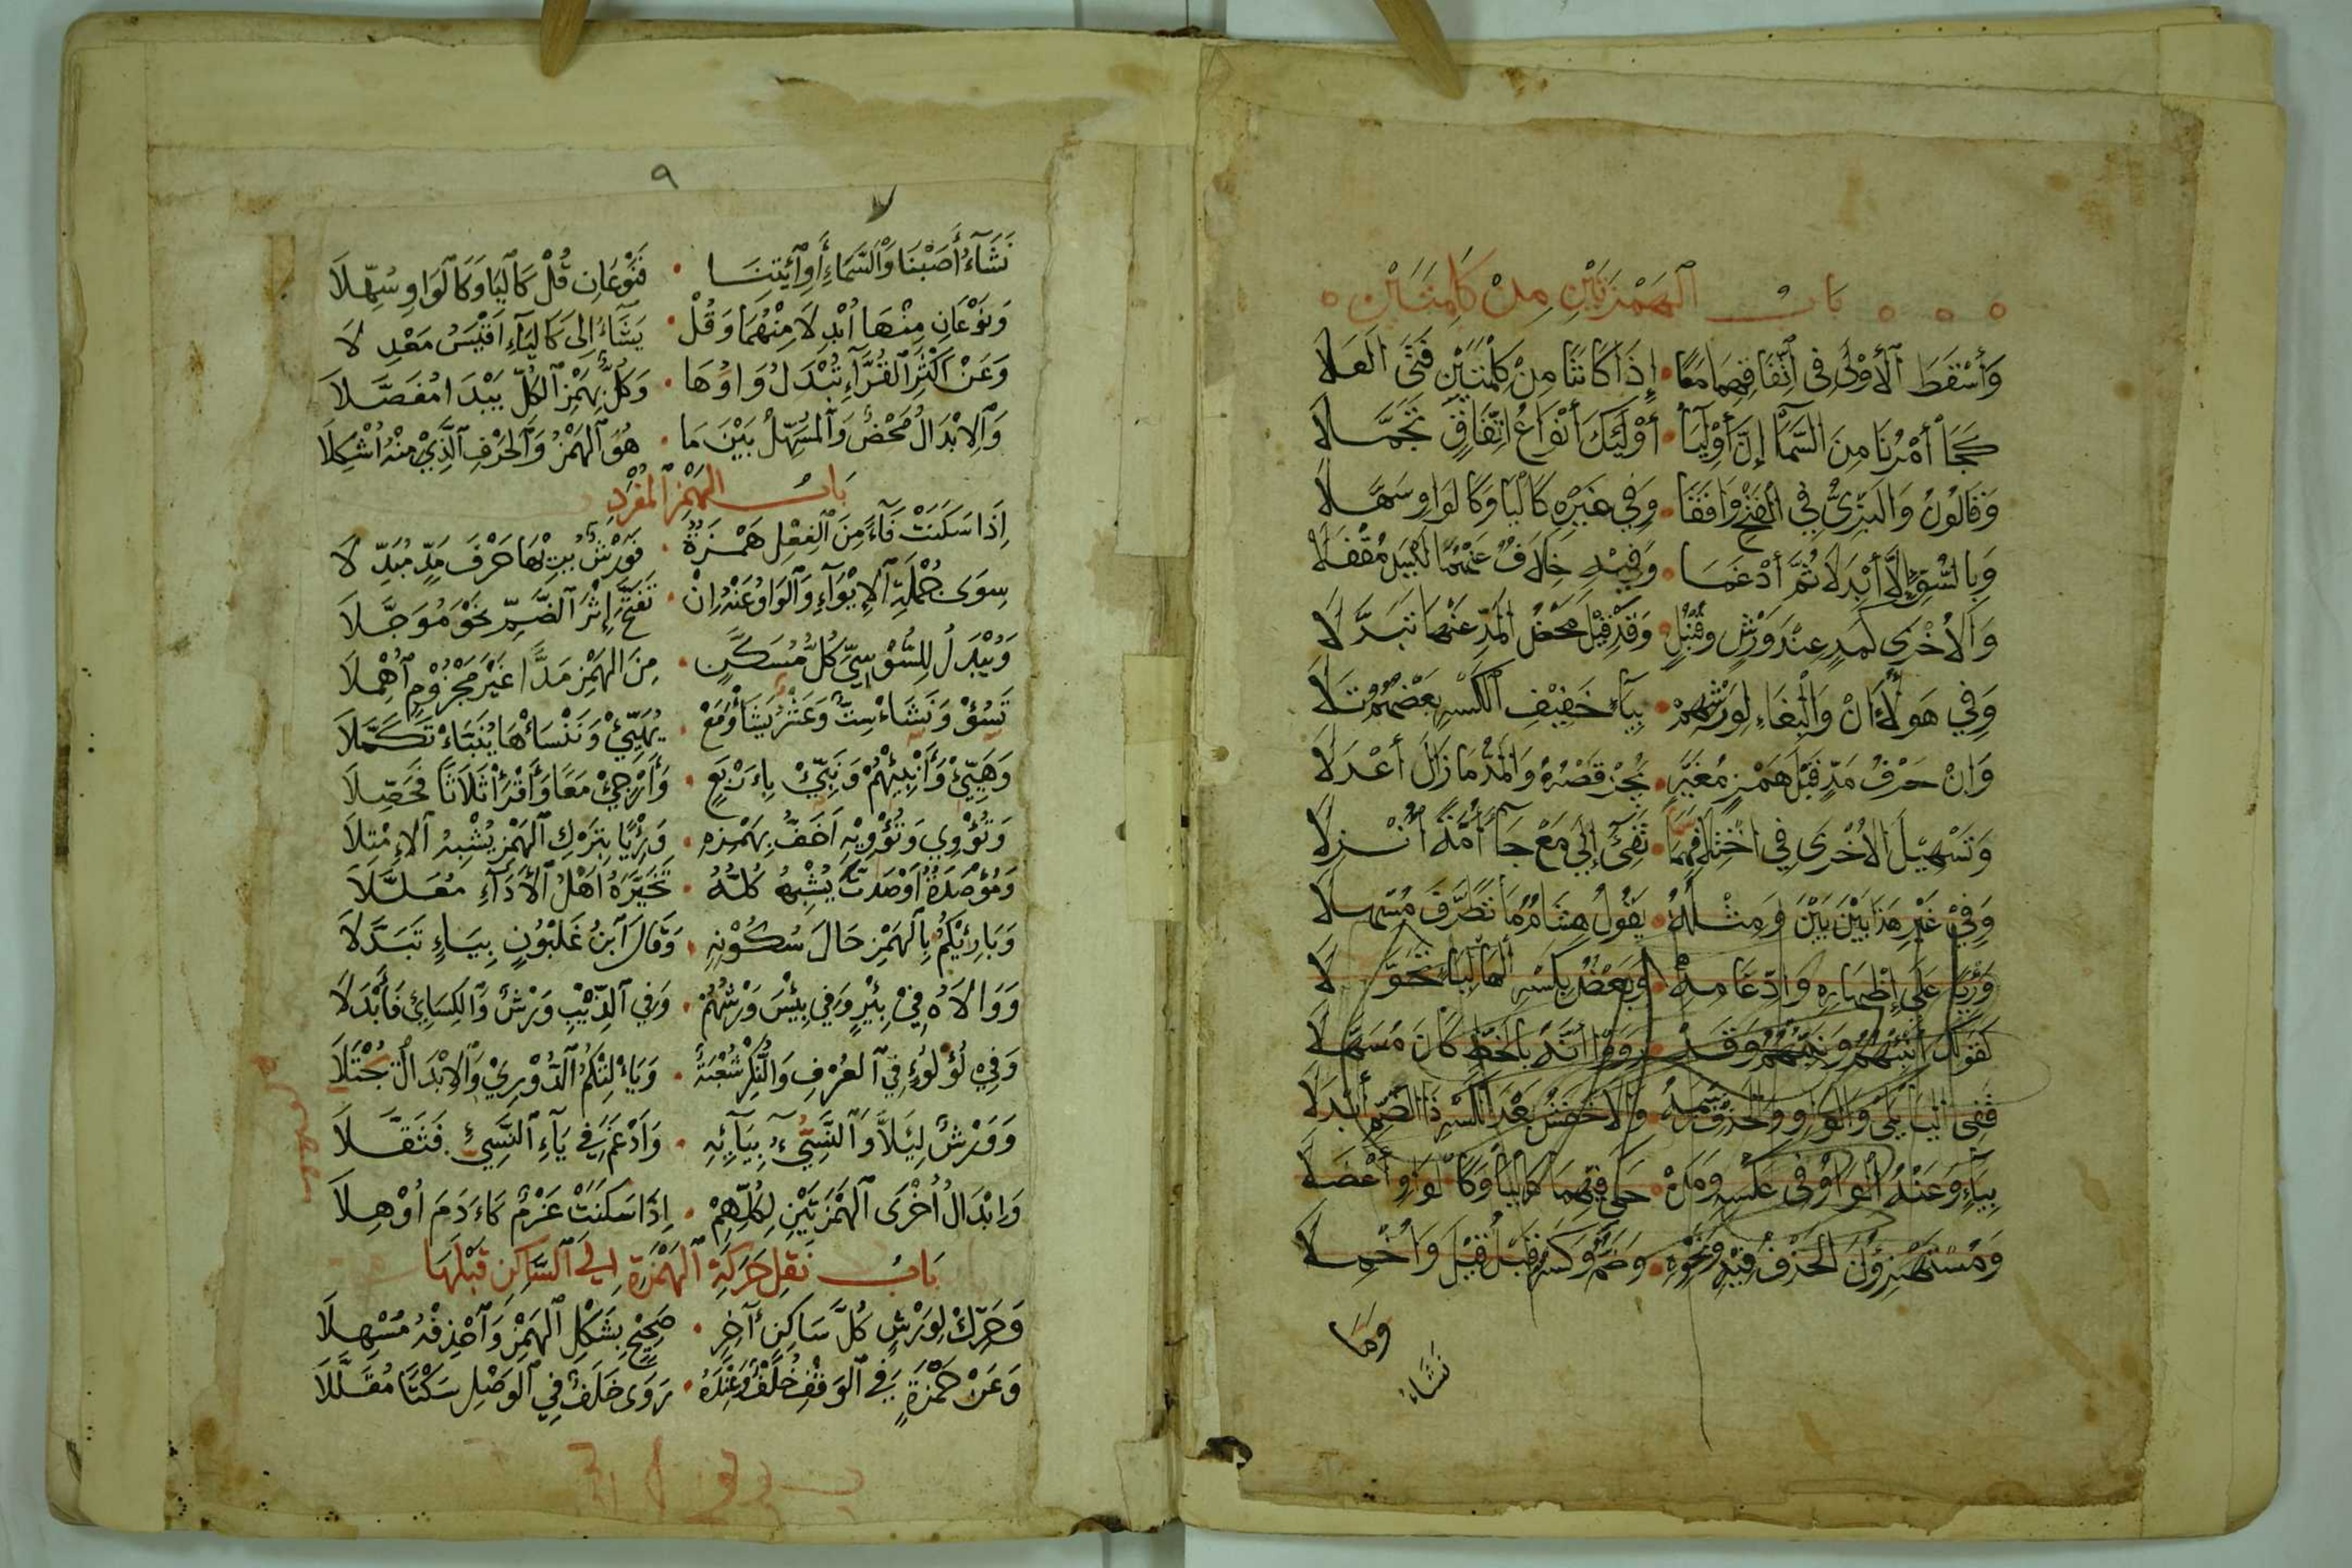 باب الهمزتين من كلمتين
وَأَسْقَطَ ٱلْأُوْلَى فِي ٱتِّفَاقِهِمَا مَعًا • إِذَا كَانَتَا مِنْ كِلْمَتَيْنِ فَتَى الْعَلَا
كَجَا أَمْرُنَا مِنَ السَّمَا إِنَّ أَوْلِيَا • أُوْلَئِكَ أَنْوَاعُ اتِّفَاقٍ تَجَمَّلَا
وَقَالُونُ وَالْبَزِّيُّ فِي الْفَتْحِ وَافَقَا • وَفِي غَيْرِهِ كَالْيَا وَكَالْوَاوِ سَهَّلَا
وَبِالسُّوِّ إِلَّا أَبْدَلَا ثُمَّ أَدْغَمَا • وَفِيْهِ خِلَافٌ عَنْهُمَا لَيْسَ مُقْفَلَا
وَالْأُخْرَى كَمَدٍّ عِنْدَ وَرْشٍ وَقُنْبُلٍ • وَقَدْ قِيْلَ مَحْضُ الْمَدِّ عَنْهَا تَبَدَّلَا
وَفِي هَؤُلَا إِنْ وَالْبِغَاءِ لِوَرْشِهِمْ • بِيَاءٍ خَفِيْفِ الْكَسْرِ بَعْضُهُمْ تَلَا
وَإِنْ حَرْفُ مَدٍّ قَبْلَ هَمْزٍ مُغَيَّرٍ • يَجُزْ قَصْرُهُ وَالْمَدُّ مَا زَالَ أَعْدَلَا
وَتَسْهِيْلُ الْأُخْرَى فِي اخْتِلَافِهِمَا سَمَا • تَفِيْءَ إِلَى مَعْ جَاءَ أُمَّةً أُنْزِلَا
وَفِيْ غَيْرِ هَذَا بَيْنَ بَيْنَ وَمِثْلُهُ • يَقُولُ هِشَامٌ مَا تَطَرَّفَ مُسْهِلَا
وَرِيًّا عَلَى إِظْهَارِهِ وَادِّغَامِهِ • وَبَعْضٌ بِكَسْرِ الْهَا لِيَاءٍ تَحَوَّلَا
كَقَوْلِكَ أَنْبِئْهُمْ وَنَبِّئْهُمْ وَقَدْ • رَوَوْا أَنَّهُ بِالْخَطِّ كَانَ مُسَهَّلَا
فَفِي الْيَا يَلِي وَالْوَاوِ وَالْحَذْفِ رَسْمَهُ • وَالْأَخْفَشُ بَعْدَ الْكَسْرِ ذَا الضَّمِّ أَبْدَلَا
بِيَاءٍ وَعَنْهُ الْوَاوُ فِي عَكْسِهِ وَمَنْ • حَكَى فِيْهِمَا كَالْيَا وَكَالْوَاوِ أَعْضَلَا
وَمُسْتَهْزِؤُنَ الْحَذْفُ فِيْهِ وَنَحْوِهِ • وَضَمٌّ وَكَسْرٌ قَبْلُ قِيْلَ وَأُخْمِلَا
وَمَا
نَشَاءُ
٩
نَشَاءُ أَصَبْنَا وَٱلسَّمَاءِ أَوِ ٱئْتِنَا • فَنَوْعَانِ قُلْ كَالْيَا وَكَالْوَاوِ سُهِّلَا
وَنَوْعَانِ مِنْهَا أُبْدِلَا مِنْهُمَا وَقُلْ • يَشَاءُ إِلَى كَالْيَاءِ أَقْيَسُ مَعْدِلَا
وَعَنْ أَكْثَرِ ٱلْقُرَّاءِ تُبْدَلُ وَاوُهَا • وَكُلٌّ بِهَمْزِ ٱلْكُلِّ يَبْدَا مُفَصَّلَا
وَٱلْإِبْدَالُ مَحْضٌ وَٱلْمُسَهَّلُ بَيْنَ مَا • هُوَ ٱلْهَمْزُ وَٱلْحَرْفِ ٱلَّذِيْ مِنْهُ أُشْكِلَا
بَابُ الهَمْزِ ٱلْمُفْرَدِ
إِذَا سَكَنَتْ فَاءً مِنَ ٱلْفِعْلِ هَمْزَةٌ • فَوَرْشٌ يُرِيْهَا حَرْفَ مَدٍّ مُبَدِّلَا
سِوَى جُمْلَةِ ٱلْإِيْوَاءِ وَٱلْوَاوُ عَنْهُ إِنْ • تَفَتَّحَ إِثْرَ ٱلضَّمِّ نَحْوُ مُوَجَّلَا
وَيُبْدَلُ لِلسُّوْسِيِّ كُلُّ مُسَكَّنٍ • مِنَ الْهَمْزِ مَدًّا غَيْرَ مَجْزُوْمٍ ٱهْمِلَا
تَسُؤْ وَنَشَاءْ سِتٌّ وَعَشْرُ يَشَأْ وَمَعْ • يُهَيِّئْ وَنَنْسَأْهَا يُنَبَّأْ تَكَمَّلَا
وَهَيِّئْ وَأَنْبِئْهُمْ وَنَبِّئْ بِأَرْبَعٍ • وَأَرْجِئْ مَعًا وَٱقْرَأْ ثَلَاثًا فَحَصِّلَا
وَتُؤْوِي وَتُؤْوِيْهِ أَخَفُّ بِهَمْزِهِ • وَرِئْيًا بِتَرْكِ ٱلْهَمْزِ يُشْبِهُ ٱلْإِمْتِلَا
وَمُؤْصَدَةٌ أَوْصَدتُّ يُشْبِهُ كُلُّهُ • تَخَيَّرَهُ أَهْلُ ٱلْأَدَاءِ مُعَلَّلَا
وَبَارِئْكُمُ بِٱلْهَمْزِ حَالَ سُكُوْنِهِ • وَقَالَ ٱبْنُ غَلْبُوْنٍ بِيَاءٍ تَبَدَّلَا
وَوَالَاهُ فِيْ بِئْرٍ وَفِي بِئْسَ وَرْشُهُمْ • وَفِي ٱلذِّئْبِ وَرْشٌ وَٱلْكِسَائِي فَأَبْدَلَا
وَفِي لُؤْلُؤٍ فِي ٱلْعُرْفِ وَالنُّكْرِ شُعْبَةٌ • وَيَأْلِتْكُمُ ٱلدُّوْرِيْ وَٱلْإِبْدَالُ يُجْتَلَا
وَوَرْشٌ لِيَلَّا وَٱلنَّسِيُّ بِيَائِهِ • وَأَدْغَمَ فِي يَاءِ ٱلنَّسِيِّ فَثَقَّلَا
وَإِبْدَالُ أُخْرَى ٱلْهَمْزَتَيْنِ لِكُلِّهِمْ • إِذَا سَكَنَتْ عَزْمٌ كَآدَمَ أُوْهِلَا
بَابُ نَقْلِ حَرَكَةِ ٱلْهَمْزَةِ إلى ٱلسَّاكِنِ قَبْلَهَا
وَحَرِّكْ لِوَرْشٍ كُلَّ سَاكِنٍ آخِرٍ • صَحِيْحٍ بِشَكْلِ ٱلْهَمْزِ وَٱحْذِفْهُ مُسْهِلَا
وَعَنْ حَمْزَةٍ فِي ٱلْوَقْفِ خُلْفٌ وَعِنْدَهُ • رَوَى خَلَفٌ فِي ٱلْوَصْلِ سَكْتًا مُقَلَّلَا